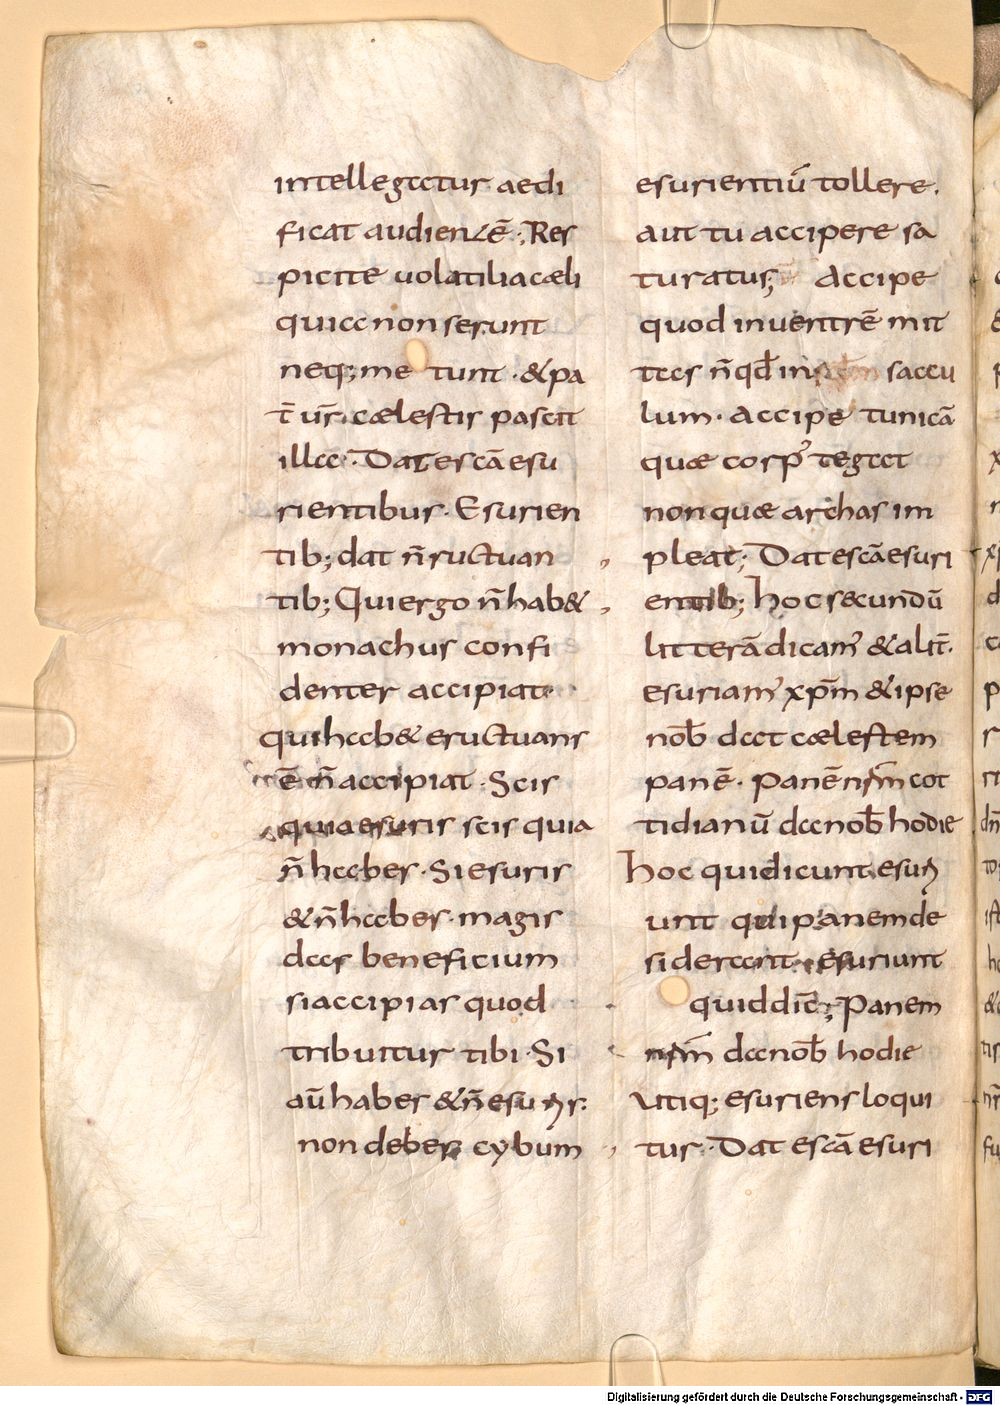 intellegatur aedi
ficat audientē·; Res
picite uolatilia cæli
quia non serunt
neq; me tunt · & pa
t̄ ur̄ cælestis pascit
illa · Dat escā esu
rientibus · Esurien
tib; dat n̄ ructuan
tib; Qui ergo n̄ hab&
monachus confi
denter accipiat·
qui hab& eructuans
ē n̄ accipiat · Scis
quia esuris scis quia
n̄ habes · Si esuris
& n̄ habes · magis
das beneficium
si accipias quod
tribuitur tibi · Si
aū habes & n̄ esuris·
non debes cybum
esurientiū tollere.
aut tu accipere sa
turatus; Accipe
quod in uentrē mit
tas n̄ qd̄ in saccu
lum · Accipe tunicā
quæ corpꝰ tegat
non quæ archas im
pleat; Dat escā esuri
entib; hoc secundū
litterā dicamꝰ & alit̄·
esuriamꝰ xp̄m & ipse
nob̄ dat cælestem
panē · Panē nr̄m cot
tidianū da nob̄ hodie
hoc qui dicunt esuri
unt qui panem de
siderant esuriunt
quid dic̄; Panem
nr̄m da nob̄ hodie
Utiq; esuriens loqui
tur · Dat escā esuri
Digitalisierung gefördert durch die Deutsche Forschungsgemeinschaft - DFG